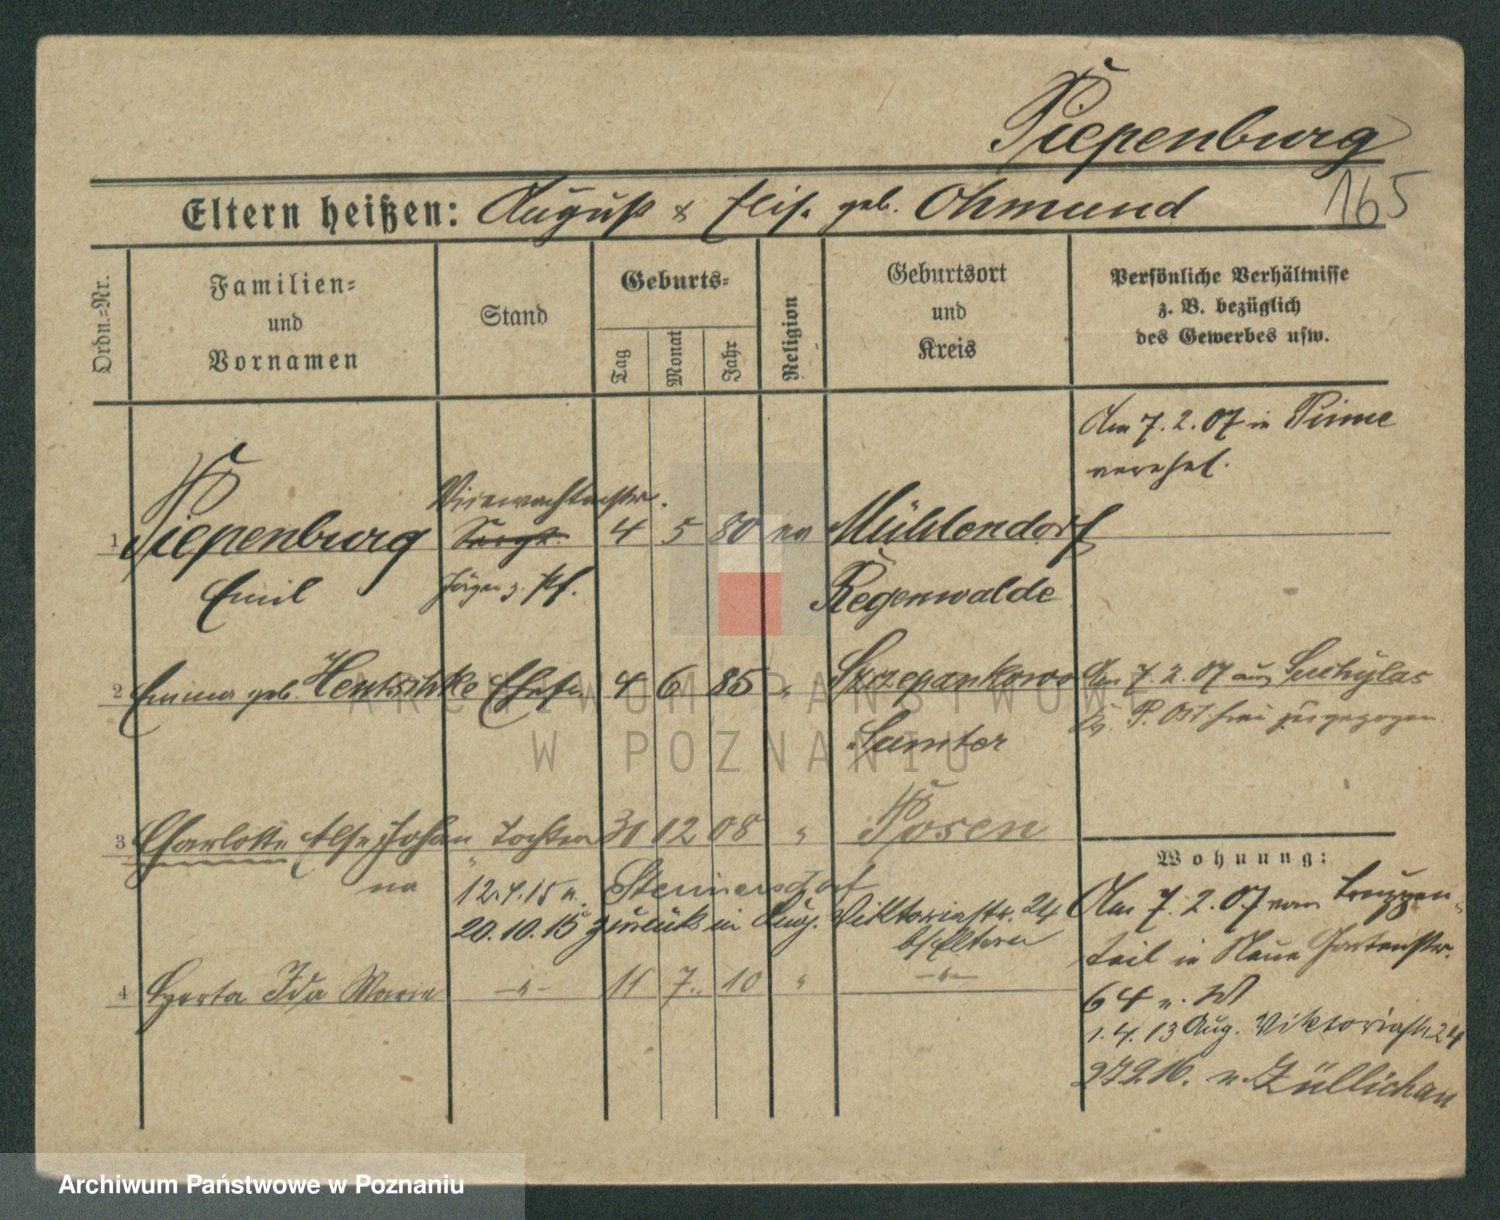 Piepenburg
165
Eltern heißen: August & Elis. geb. Ohmund
Ordn.=Nr.
Familien=
und
Vornamen
Stand
Geburts=
Tag
Monat
Jahr
Religion
Geburtsort
und
Kreis
Persönliche Verhältnisse
z. B. bezüglich
des Gewerbes usw.
Am 7.2.07 in Pinne
verehel.
1 Piepenburg Sergt. 4 5 80 ev Mühlendorf
Emil Jäger z. Pf. Regenwalde
2 Emma geb. Hentschke Ehefr. 4 6 85 " Szczepankowo
Samter
Am 7.2.07 aus Suchylas
Kr. P. Ost zugezogen
3 Charlotte Else Johan Tochter 31 12 08 " Posen
na
12.4.15 n. Steinersdorf
20.10.15 zurück in Aug. Viktoriastr. 24
b/ Eltern
4 Gerta Ida Marie -"- 11 7. 10 " -"-
Wohnung:
Am 7.2.07 vom Truppen-
teil in Neue Gartenstr.
64 n. W
1.4.13 Aug. Viktoriastr. 24
27216. n. Züllichau
ARCHIWUM PAŃSTWOWE
W POZNANIU
Archiwum Państwowe w Poznaniu